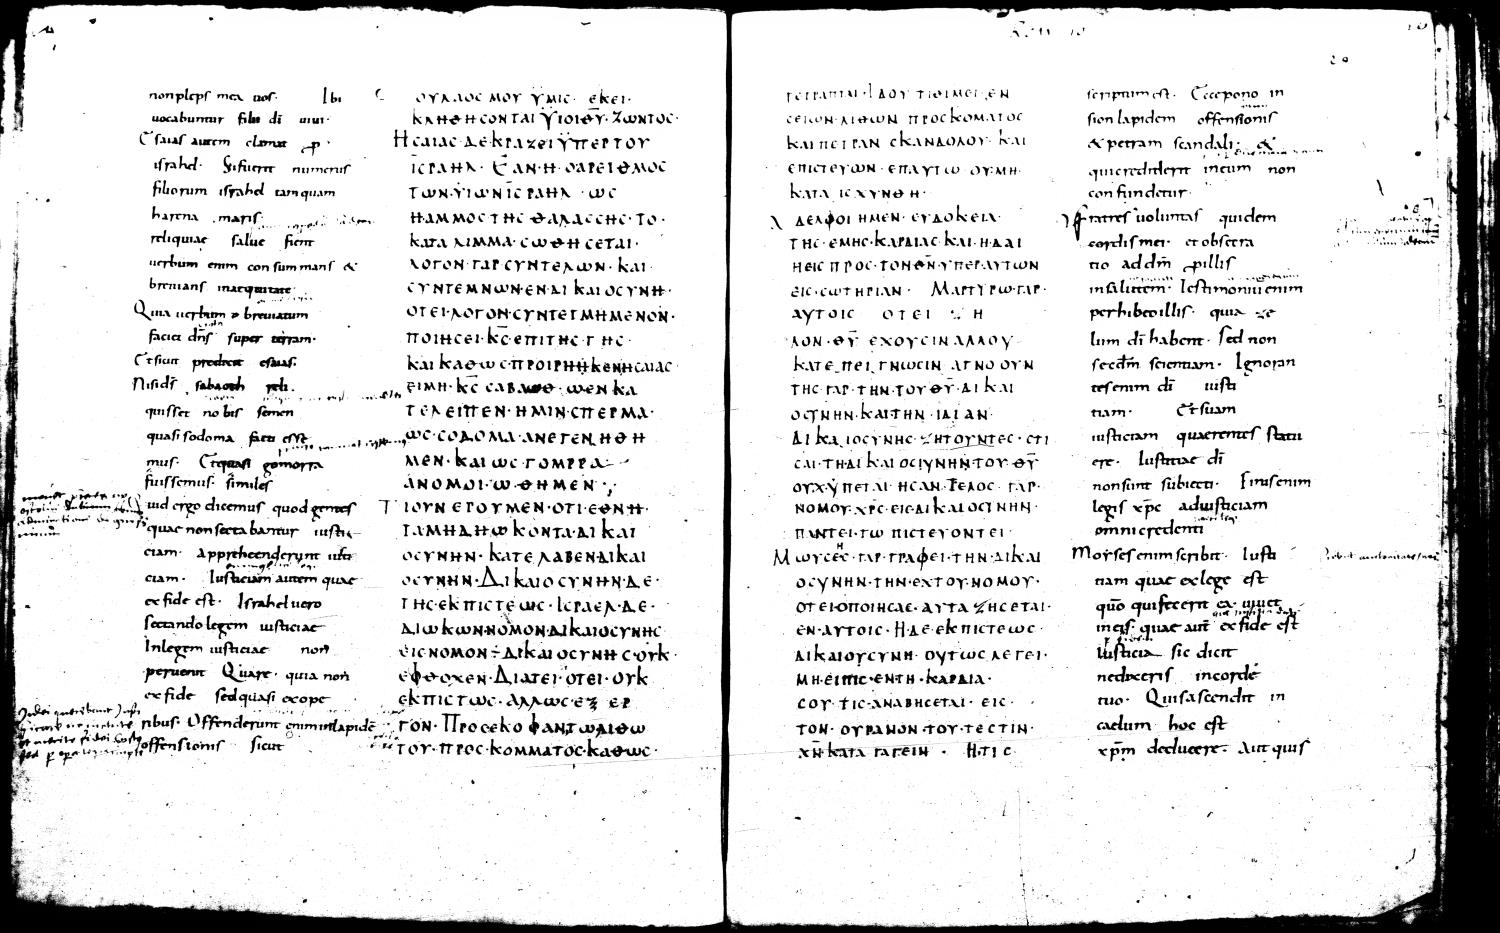 non pleps mea vos· Ibi
vocabuntur filii dī vivi·
Esaias autem clamat
israhel· Si fuerit numerus
filiorum israhel tamquam
harena maris·
reliquiae salue fient
uerbum enim consummans &
brevians inaequitate·
Quia uerbum breviatum
faciet dn̄s super terram·
Et sicut predicit esaias·
Nisi dn̄s sabaoth reli·
quisset nobis semen
quasi sodoma facti
mus· Et quasi gomorra
fuissemus· similes
Quid ergo dicemus quod gentes
quae non secta bantur iusti
ciam· appreheenderunt iusti
ciam· Iusticiam autem quae
ex fide est· Israhel uero
sectando legem iusticiae
In legem iusticiae non
peruenit Quare· quia non
ex fide sed quasi ex ope
ribus· Offenderunt enim in lapidē
offensionis sicut
ΟΥ ΛΑΟС ΜΟΥ ΫΜΙС· ΕΚΕΙ·
ΚΛΗΘΗСΟΝΤΑΙ ΫΙΟΙ Θ̄Ῡ· ΖѠΝΤΟС·
ΗСΑΙΑС· ΔΕ· ΚΡΑΖΕΙ ΫΠΕΡ ΤΟΥ
ΙС̄ΡΑΗΛ· ΕΑΝ· Η· ΟΑΡΕΙΘΜΟС
ΤѠΝ·ΫΙѠΝ ΙС̄ΡΑΗΛ· ѠС
Η ΑΜΜΟС ΤΗС ΘΑΛΑССΗС· ΤΟ·
ΚΑΤΑ ΛΙΜΜΑ· СѠΘΗСΕΤΑΙ·
ΛΟΓΟΝ· ΓΑΡ СΥΝΤΕΛѠΝ· ΚΑΙ·
СΥΝΤΕΜΝѠΝ· ΕΝ· ΔΙΚΑΙΟСΥΝΗ·
ΟΤΕΙ· ΛΟΓΟΝ· СΥΝΤΕΤΜΗΜΕΝΟΝ·
ΠΟΙΗСΕΙ· Κ̄С̄· ΕΠΙ ΤΗС· ΓΗС·
ΚΑΙ ΚΑΘѠС· ΠΡΟΙΡΗ
ΕΙ ΜΗ· Κ̄С̄ САΒΑѠΘ· ѠΕΝ ΚΑ
ΤΕΛΕΙΠΕΝ· ΗΜΙΝ· СΠΕΡΜΑ·
ѠС· СΟΔΟΜΑ· ΑΝΕΓΕΝΗΘΗ
ΜΕΝ· ΚΑΙ ѠС· ΓΟΜΡΡΑ
ΑΝΟΜΟΙ· ѠΘΗΜΕΝ·
ΤΙ ΟΥΝ ΕΡΟΥΜΕΝ· ΟΤΙ· ΕΘΝΗ·
ΤΑ ΜΗ ΔΙѠΚΟΝΤΑ· ΔΙΚΑΙ
ΟСΥΝΗΝ· ΚΑΤΕΛΑΒΕΝ· ΔΙΚΑΙ
ΟСΥΝΗΝ· ΔΙΚΑΙΟСΥΝΗΝ· ΔΕ·
ΤΗС· ΕΚ ΠΙСΤΕѠС· ΙСΡΑΕΛ· ΔΕ·
ΔΙѠΚѠΝ· ΝΟΜΟΝ· ΔΙΚΑΙΟСΥΝΗС
ΕΙС ΝΟΜΟΝ· ΔΙΚΑΙΟСΥΝΗС· ΟΥΚ·
ΕΦΘΟΧΕΝ· ΔΙΑΤΕΙ· ΟΤΕΙ· ΟΥΚ
ΕΚ ΠΙСΤѠС· ΑΛΛѠС ΕΞ ΕΡ
ΓΟΝ· ΠΡΟСΕΚΟΦΑΝ ΤѠ ΛΙΘѠ
ΤΟΥ· ΠΡΟС· ΚΟΜΜΑΤΟС· ΚΑΘѠС·
ΓΕΓΡΑΠΤΑΙ· ΙΔΟΥ ΤΙΘΙΜΕΙ· ΕΝ
СΕΙѠΝ· ΛΙΘѠΝ ΠΡΟСΚΟΜΑΤΟС
ΚΑΙ ΠΕΤΡΑΝ СΚΑΝΔΟΛΟΥ· ΚΑΙ
ΕΠΙСΤΕΥѠΝ· ΕΠ ΑΥΤѠ ΟΥ· ΜΗ·
ΚΑΤΑΙСΧΥΝΘΗ·
ΑΔΕΛΦΟΙ Η ΜΕΝ· ΕΥΔΟΚΕΙΑ·
ΤΗС· ΕΜΗС· ΚΑΡΔΙΑС· ΚΑΙ· Η ΔΑΙ
ΗСΙС ΠΡΟС· ΤΟΝ Θ̄Ν̄· ΥΠΕΡ ΑΥΤѠΝ
ΕΙС· СѠΤΗΡΙΑΝ· ΜΑΡΤΥΡѠ· ΓΑΡ·
ΑΥΤΟΙС ΟΤΕΙ Ζ Η
ΛΟΝ· Θ̄Ῡ ΕΧΟΥСΙΝ ΑΛΛ ΟΥ·
ΚΑΤΕΠΕΙΓΝѠСΙΝ ΑΓΝΟΟΥΝ
ΤΗС· ΓΑΡ· ΤΗΝ· ΤΟΥ Θ̄Ῡ· ΔΙΚΑΙ
ΟСΥΝΗΝ· ΚΑΙ ΤΗΝ· ΙΔΙΑΝ·
ΔΙΚΑΙΟСΥΝΗС· ΖΗΤΟΥΝΤΕС· СΤΙ
СΑΙ· ΤΗ ΔΙΚΑΙΟСΙΥΝΗΝ· ΤΟΥ· Θ̄Ῡ
ΟΥΧ ΫΠΕΤΑΓΗСΑΝ· ΤΕΛΟС· ΓΑΡ·
ΝΟΜΟΥ· Χ̄Ρ̄С̄· ΕΙС· ΔΙΚΑΙΟСΥΝΗΝ·
ΠΑΝΤΕΙ· ΤѠ ΠΙСΤΕΥΟΝΤΕΙ·
ΜѠΥСΕС· ΓΑΡ· ΓΡΑΦΕΙ· ΤΗΝ· ΔΙΚΑΙ
ΟСΥΝΗΝ· ΤΗΝ· ΕΧ ΤΟΥ· ΝΟΜΟΥ·
ΟΤΕΙ· Ο ΠΟΙΗСΑС· ΑΥΤΑ ΖΗСΕΤΑΙ·
ΕΝ· ΑΥΤΟΙС· Η ΔΕ· ΕΚ ΠΙСΤΕѠС·
ΔΙΚΑΙΟΥСΥΝΗ· ΟΥΤѠС ΛΕΓΕΙ·
ΜΗ· ΕΙΠΙС· ΕΝ ΤΗ· ΚΑΡΔΙΑ·
СΟΥ· ΤΙС· ΑΝΑΒΗСΕΤΑΙ· ΕΙС·
ΤΟΝ· ΟΥΡΑΝΟΝ· ΤΟΥ· ΤΕСΤΙΝ·
Χ̄Ν̄· ΚΑΤΑΓΑΓΕΙΝ· Η· ΤΙС
scriptum est· Ecce pono in
sion lapidem offensionis
& petram scandali· &
qui crediderit in eum non
confundetur·
Fratres uoluntas quidem
cordis mei· et obsecra
tio ad dm̄ p illis
in salutem· Testimonium enim
perhibeo illis· quia ze
lum dī habent· sed non
secdm̄ scientiam· Ignoran
tes enim dī iusti
tiam· Et suam
iusticiam quaerentes statu
ere· Iustitiae dī
non sunt subiecti· Finis enim
legis xp̄c ad iusticiam
omni credenti
Moyses enim scribit· Iusti
tiam quae ex lege est
quō qui fecerit ea vivet
in eis· quae aut̄ ex fide est
Iusticia sic dicit
ne dixeris in corde
tuo· Quis ascendit in
caelum hoc est
xpm̄ deducere· Aut quis